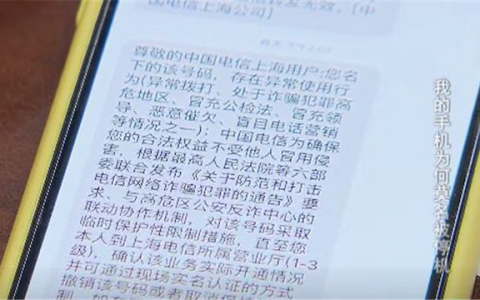 国电信上海公司]
尊敬的中国电信上海用户:您名
下的该号码，存在异常使用行
为(异常拨打、处于诈骗犯罪高
危地区、冒充公检法、冒充领
导、恶意催欠、盲目电话营销
等情况之一);中国电信为确保
您的合法权益不受他人冒用侵
害，根据最高人民法院等六部
委联合发布《关于防范和打击
电信网络诈骗犯罪的通告》要
求、与高危区公安反诈中心的
联动协作机制，对该号码采取
临时保护性限制措施，直至您
本人到上海电信所属营业厅(1-3
级)，确认该业务实际开通情况
并可通过现场实名认证的方式
撤销该号码或者取消保护
我的手机为何莫名被停机